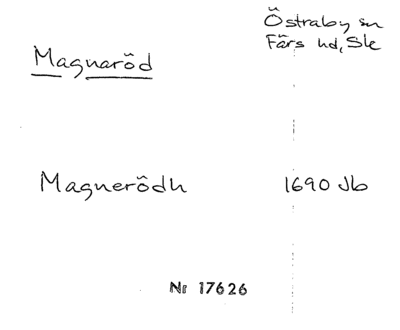 Östraby sn
Färs hd, Ske
Magnaröd
Magnerödh 1690 Jb
Nr 17626